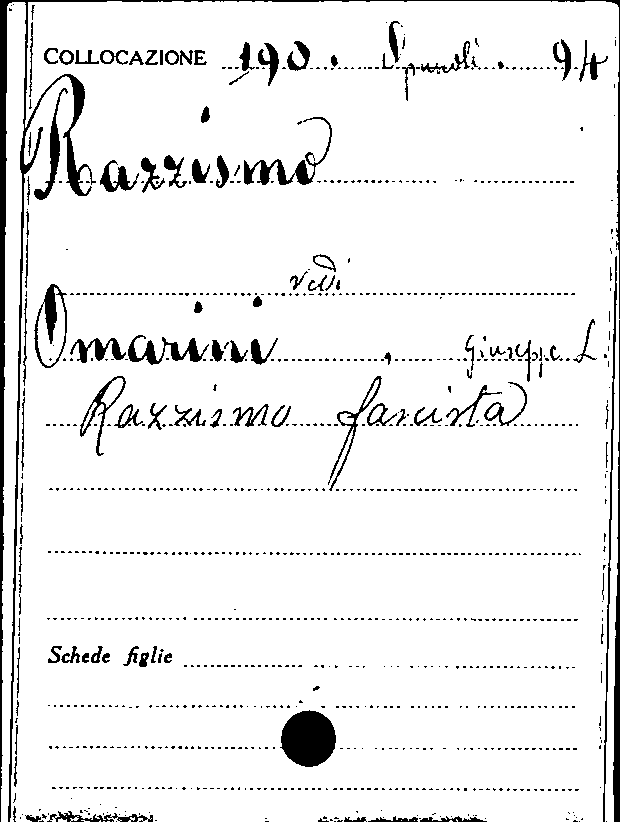 COLLOCAZIONE 190. 94
Razzismo
vedi
Omarini, Giuseppe L.
Razzismo fascista
Schede figlie